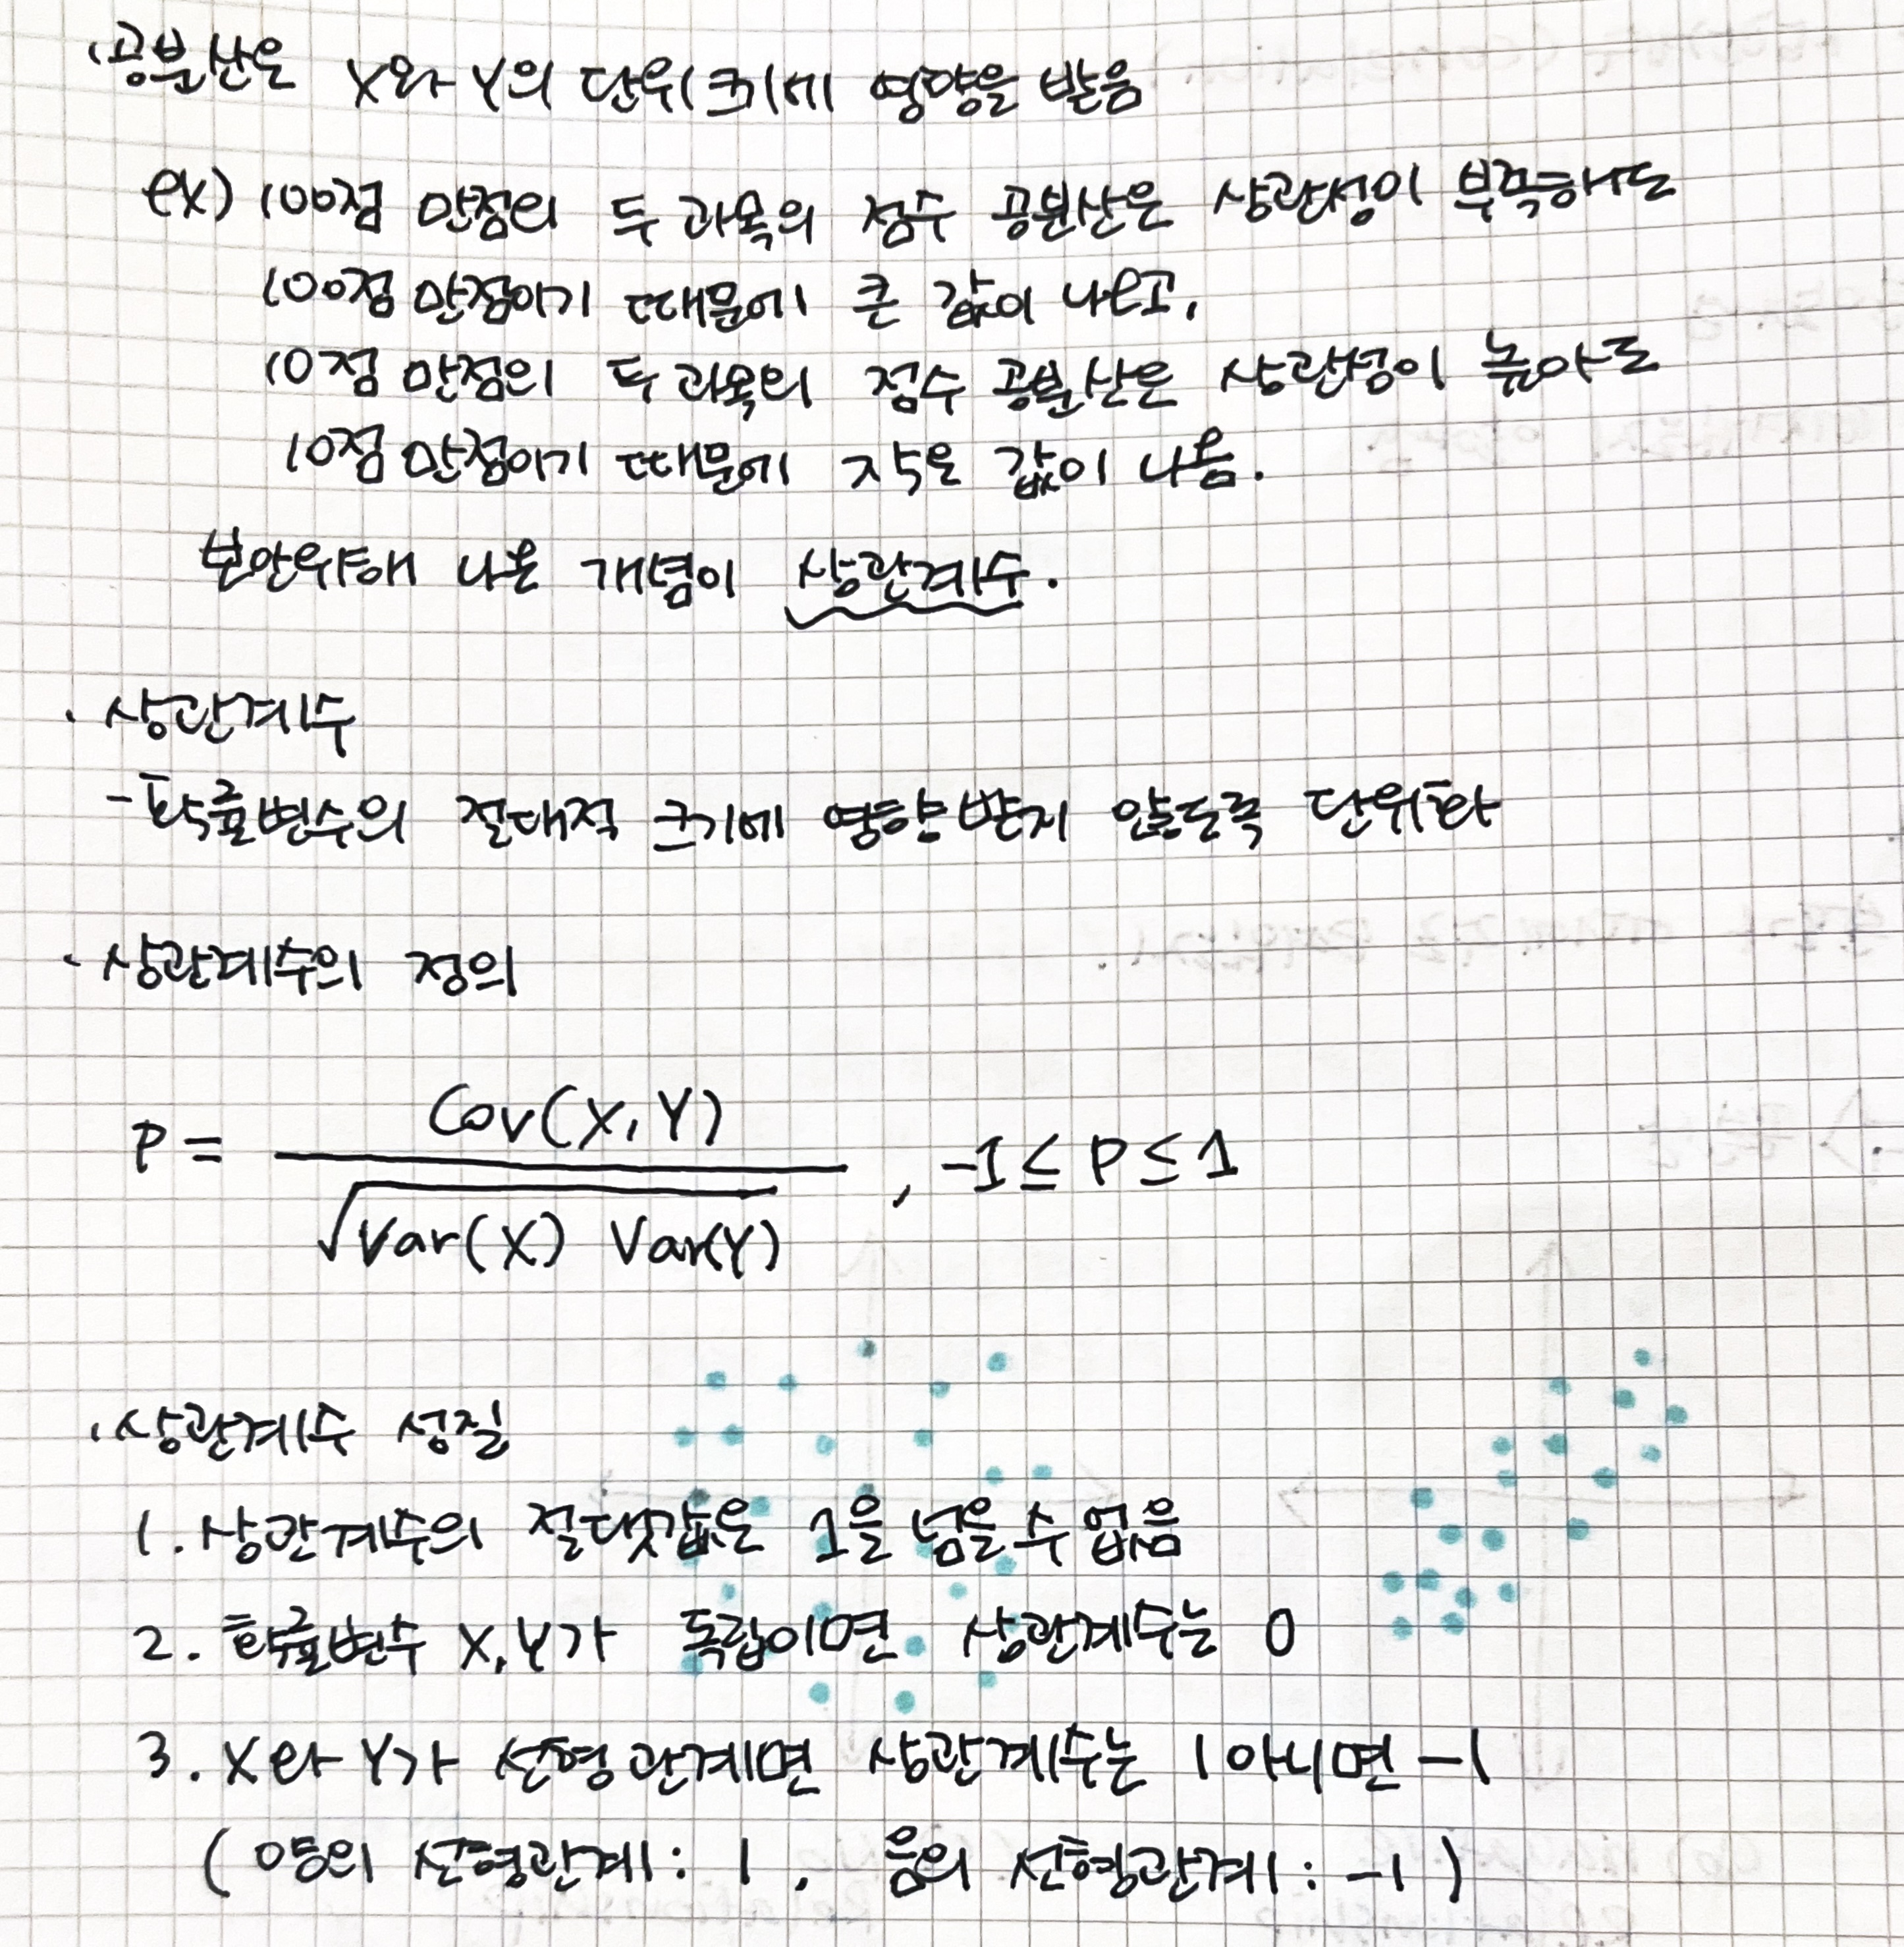 · 공분산은 X와 Y의 단위 크기에 영향을 받음
ex) 100점 만점의 두 과목의 점수 공분산은 상관성이 부족해도
100점 만점이기 때문에 큰 값이 나오고,
10점 만점의 두 과목의 점수 공분산은 상관성이 높아도
10점 만점이기 때문에 작은 값이 나옴.
보안위해 나온 개념이 상관계수.
· 상관계수
- 확률변수의 절대적 크기에 영향받지 않도록 단위화
· 상관계수의 정의
P = Cov(X,Y) / √Var(X) Var(Y) , -1 ≤ P ≤ 1
· 상관계수 성질
1. 상관계수의 절댓값은 1을 넘을 수 없음
2. 확률변수 X,Y가 독립이면 상관계수는 0
3. X와 Y가 선형관계면 상관계수는 1 아니면 -1
( 양의 선형관계 : 1 , 음의 선형관계 : -1 )